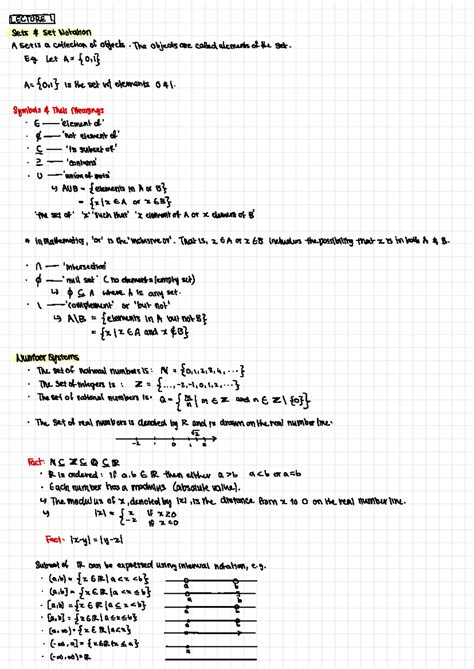 LECTURE 1
Sets & Set Notation
A set is a collection of objects. The objects are called elements of the set.
Eg. Let A = {0,1}
A = {0,1} is the set w/ elements 0 & 1.
Symbols & Their Meanings
· ∈ — 'element of'
· ∉ — 'not element of'
· ⊆ — 'is subset of'
· ⊇ — 'contains'
· ∪ — 'union of sets'
↳ A∪B = {elements in A or B}
= {x | x ∈ A or x ∈ B}
'the set of' 'x' 'such that' 'x element of A or x element of B'
* In mathematics, 'or' is the 'inclusive or'. That is, x ∈ A or x ∈ B includes the possibility that x is in both A & B.
· ∩ — 'intersection'
· ∅ — 'null set' (no elements/empty set)
↳ ∅ ⊆ A where A is any set.
· \ — 'complement' or 'but not'
↳ A\B = {elements in A but not B}
= {x | x ∈ A and x ∉ B}
Number Systems
· The set of natural numbers is: ℕ = {0,1,2,3,4,...}
· The set of integers is: ℤ = {...,-2,-1,0,1,2,...}
· The set of rational numbers is: ℚ = {m/n | m ∈ ℤ and n ∈ ℤ\{0}}
· The set of real numbers is denoted by ℝ and is drawn on the real number line.
√2
-2 -1 0 1 2
Fact: ℕ ⊆ ℤ ⊆ ℚ ⊆ ℝ
· ℝ is ordered: if a,b ∈ ℝ then either a>b a<b or a=b
· Each number has a modulus (absolute value).
↳ The modulus of x, denoted by |x|, is the distance from x to 0 on the real number line.
↳ |x| = { x if x≥0
-x if x<0
Fact: |x-y| = |y-x|
Subset of ℝ can be expressed using interval notation, e.g.
· (a,b) = {x ∈ ℝ | a < x < b} a b
· (a,b] = {x ∈ ℝ | a < x ≤ b} a b
· [a,b) = {x ∈ ℝ | a ≤ x < b} a b
· [a,b] = {x ∈ ℝ | a ≤ x ≤ b} a b
· (a,∞) = {x ∈ ℝ | a < x} a
· (-∞,a] = {x ∈ ℝ | x ≤ a} a
· (-∞,∞) = ℝ